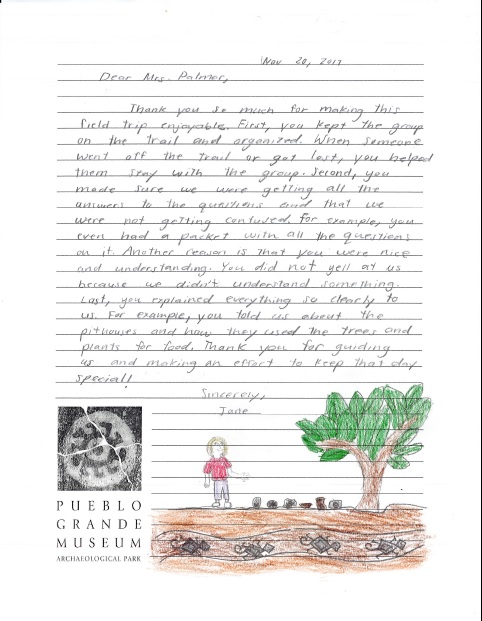 Nov 20, 2017
Dear Mrs. Palmer,
Thank you so much for making this
field trip enjoyable. First, you kept the group
on the trail and organized. When someone
went off the trail or got lost, you helped
them stay with the group. Second, you
made sure we were getting all the
answers to the questions and that we
were not getting confused. For example, you
even had a packet with all the questions
on it. Another reason is that you were nice
and understanding. You did not yell at us
because we didn't understand something.
Last, you explained everything so clearly to
us. For example, you told us about the
pithouses and how they used the trees and
plants for food. Thank you for guiding
us and making an effort to keep that day
special!
Sincerely,
Jane
PUEBLO
GRANDE
MUSEUM
ARCHAEOLOGICAL PARK